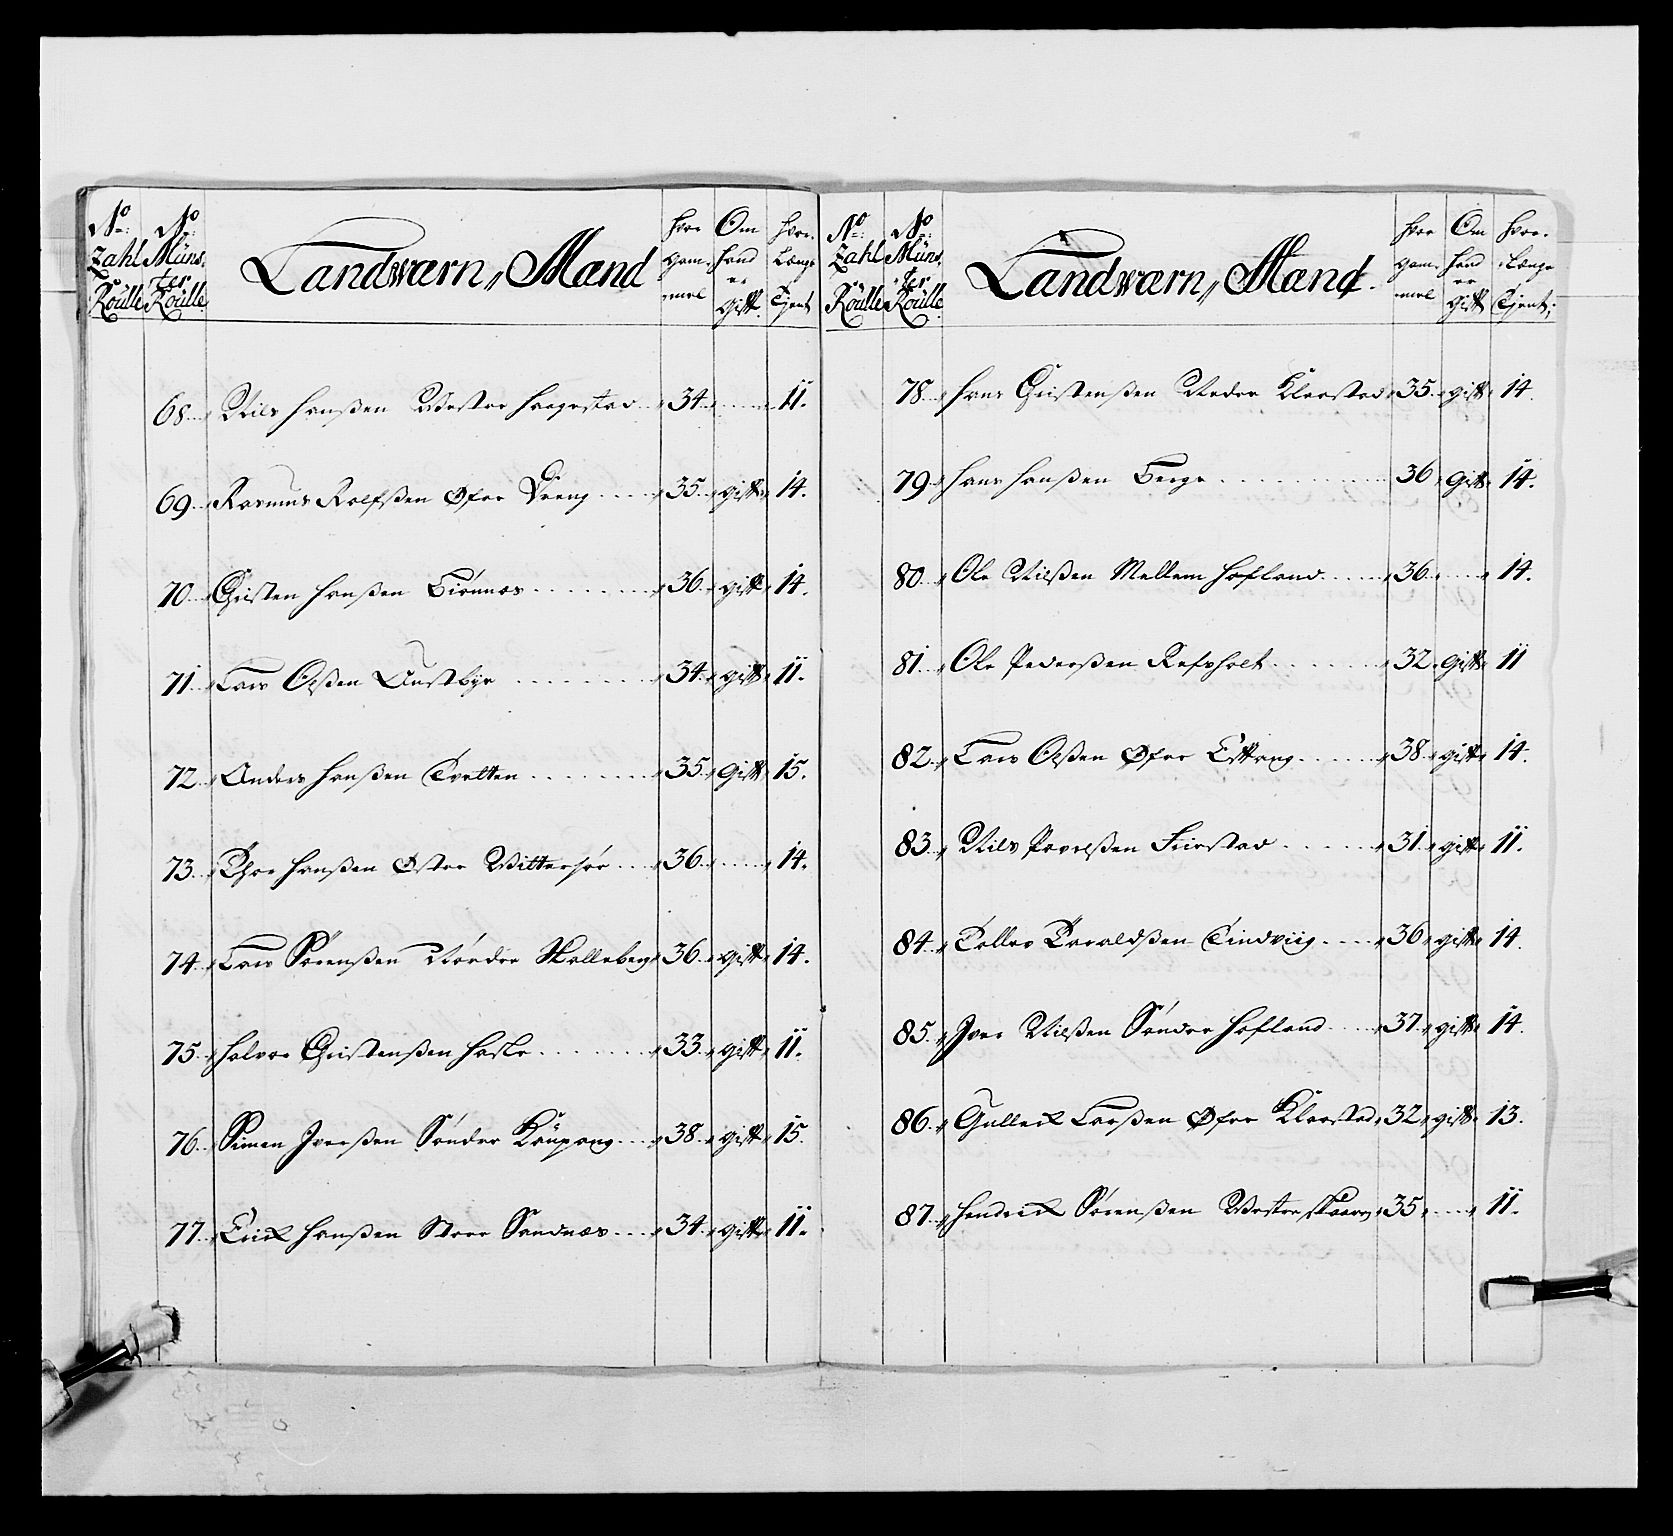 No: Zahl Roulle
No: Münster Roulle
Landværn, Mænd
hvor gammel
Om hand er gift
hvor Længe Tient
68 Nils Hanßen Vester Haagestad 34 11.
69 Rasmus Rolfßen Øfre Vreng 35 gift 14.
70 Christen Hanßen Tiønnes 36 gift 14.
71 Lars Olßen Austbye 34 gift 11.
72 Anders Hanßen Tvetten 35 Gift 15.
73 Thor Hanßen Øster Vittersøe 36 14.
74 Lars Sørenßen Nordre Skalleberg 36 gift 14.
75 Halvor Christenßen Hasle 33 gift 11.
76 Simen Iverßen Søndre Kaupang 38 gift 15.
77 Erick Hanßen Store Sandnes 34 gift 11.
No: Zahl Roulle
No: Münster Roulle
Landværn, Mænd.
hvor gammel
Om hand er gift
hvor Længe Tient;
78 Hans Christenßen Nedre Klaastad 35 gift 14.
79 Hans Hanßen Berge 36 Gift 14.
80 Ole Nilßen Mellem Hafland 36 14.
81 Ole Pederßen Refsholt 32 Gift 11
82 Lars Olßen Øfre 38 gift 14.
83 Nils Povelßen Fiirstad 31 gift 11.
84 Tollev Taraldßen Tindviig 36 gift 14.
85 Iver Nilßen Søndre Hafland 37 gift 14.
86 Gulleck Larßen Øfre Klaastad 32 gift 13.
87 Hendrick Sørenßen Vester 35 11.